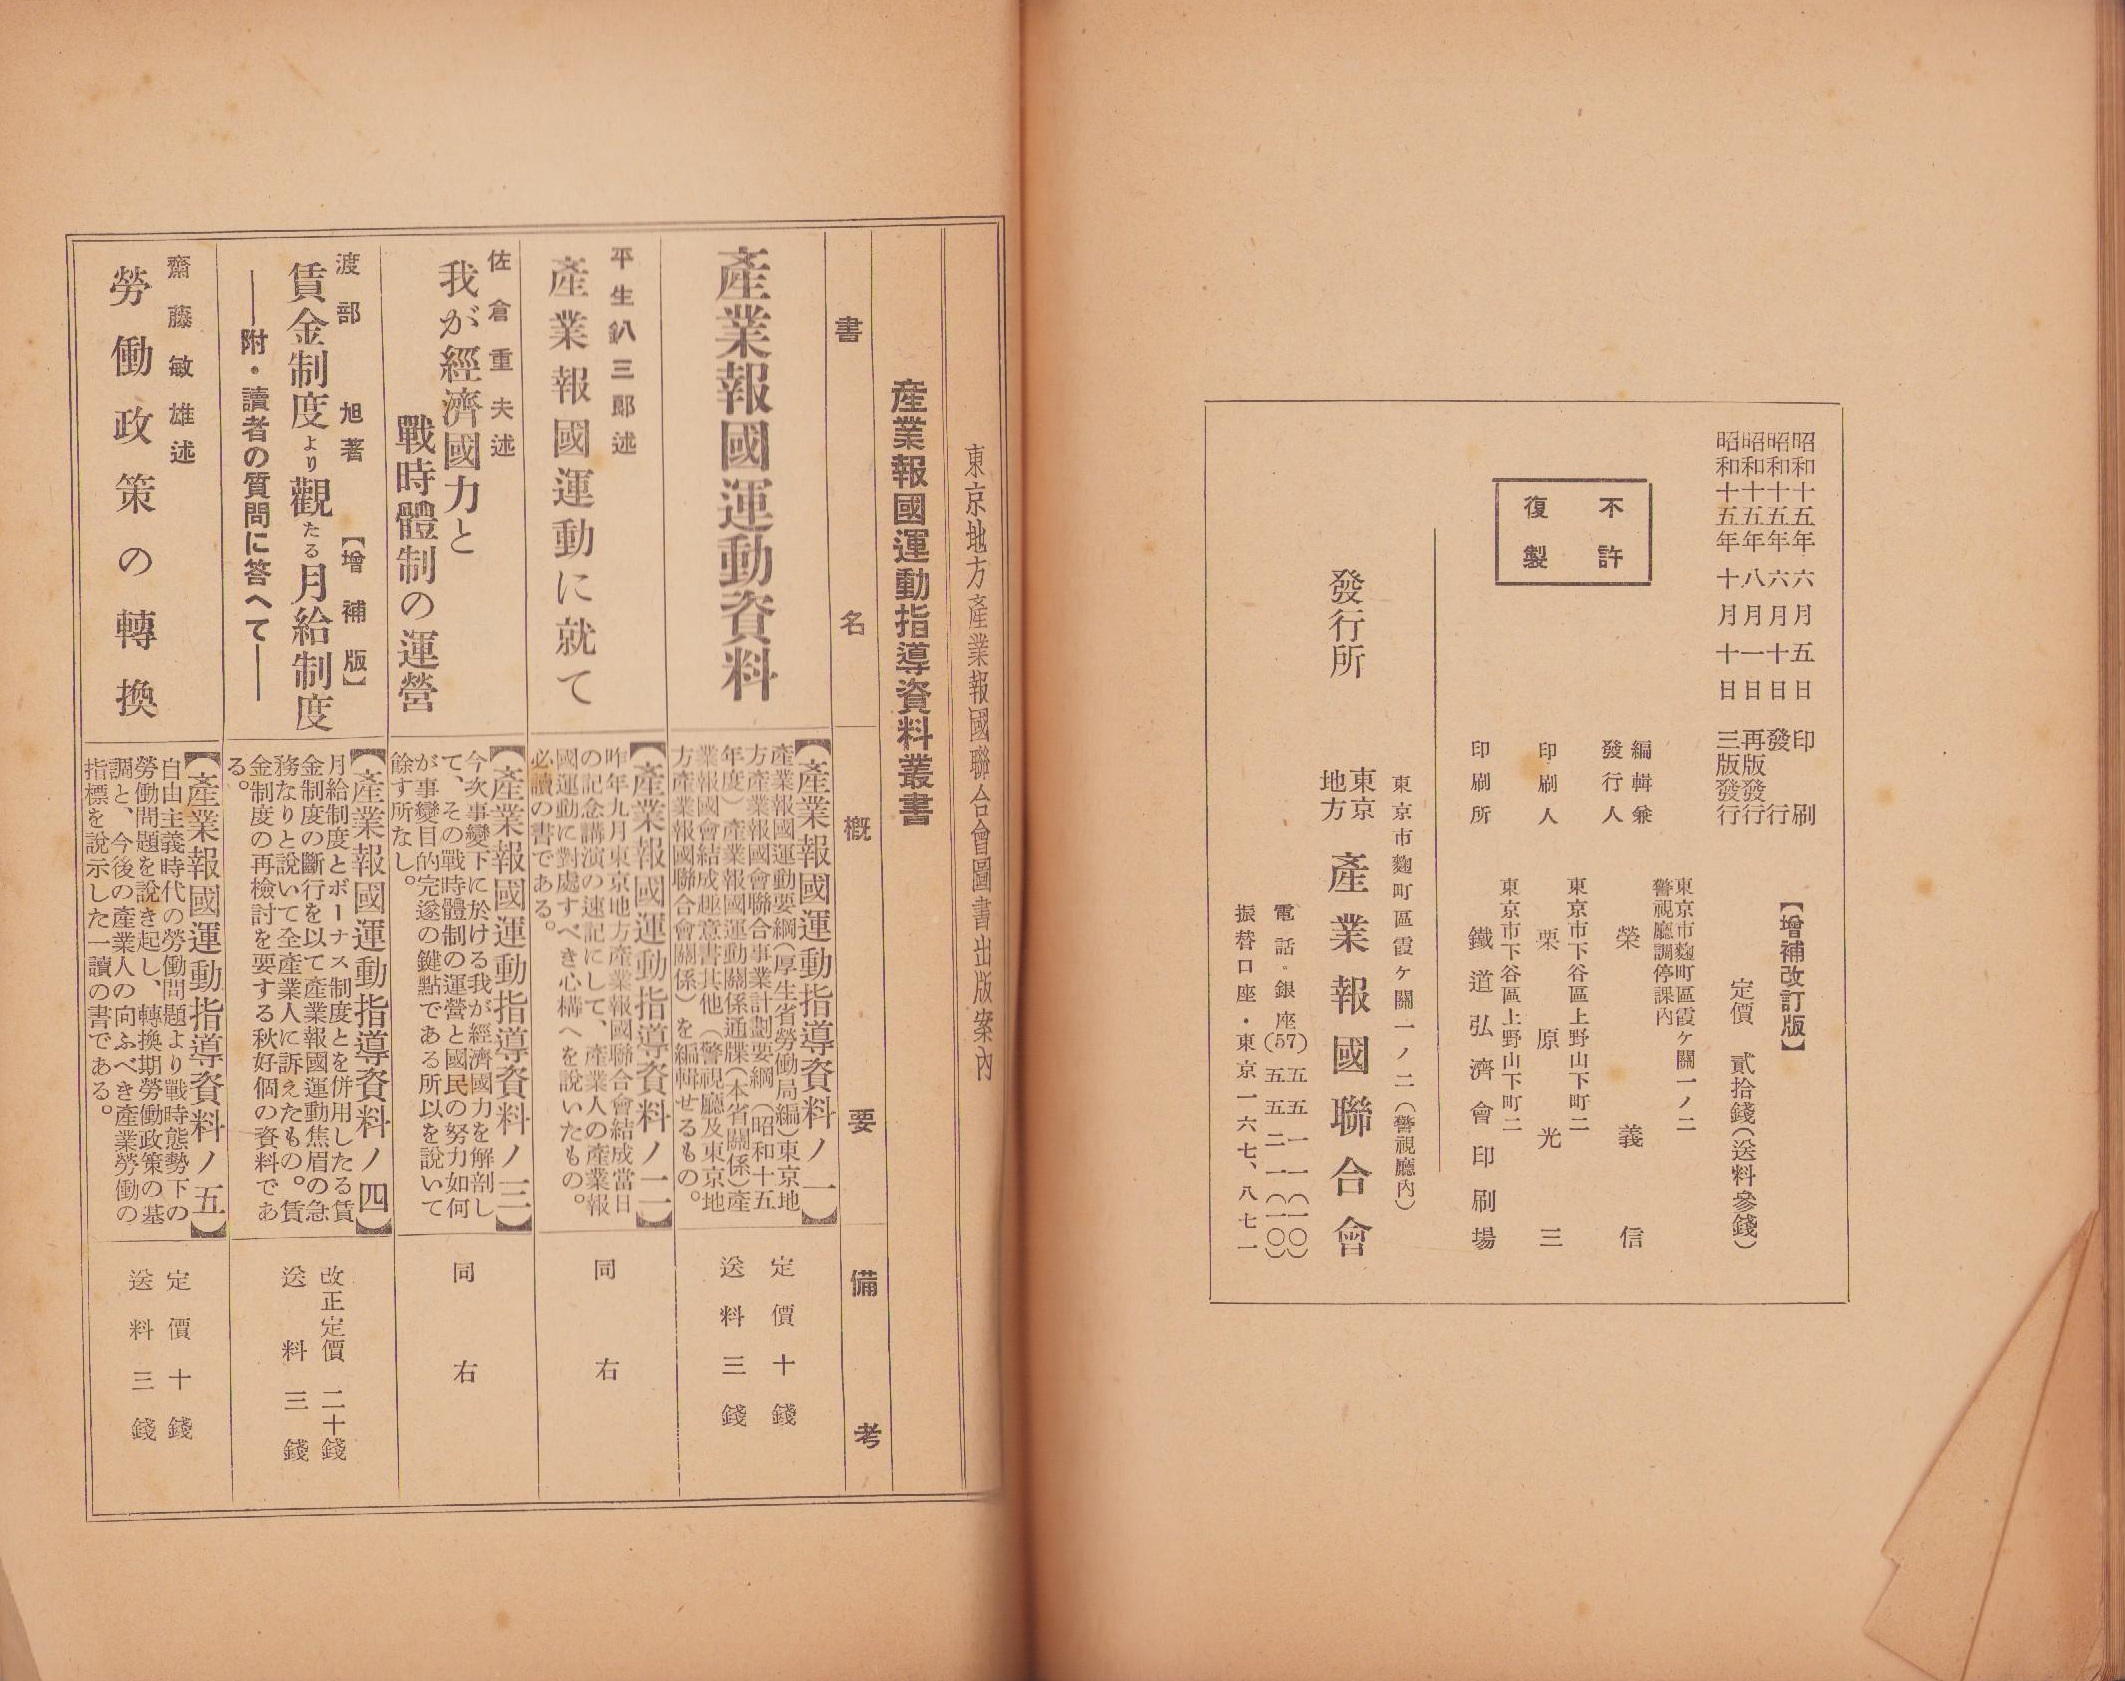 昭和十五年六月五日印刷
昭和十五年六月十日發行
昭和十五年八月一日再版發行
昭和十五年十月十日三版發行
【增補改訂版】
定價 貳拾錢(送料參錢)
不許
復製
東京市麴町區霞ケ關一ノ二
警視廳調停課內
編輯兼
發行人 榮義信
東京市下谷區上野山下町二
印刷人 栗原光三
東京市下谷區上野山下町二
印刷所 鐵道弘濟會印刷場
東京市麴町區霞ケ關一ノ二(警視廳內)
發行所 東京地方 產業報國聯合會
電話・銀座(57)五五一一(一〇〇)
五五二一(一〇〇)
振替口座・東京一六七、八七一
東京地方產業報國聯合會圖書出版案內
產業報國運動指導資料叢書
書名 槪要 備考
產業報國運動資料
【產業報國運動指導資料ノ一】
產業報國運動要綱(厚生省勞働局編)東京地
方產業報國會聯合事業計劃要綱(昭和十五
年度)產業報國運動關係通牒(本省關係)產
業報國會結成趣意書其他(警視廳及東京地
方產業報國聯合會關係)を編輯せるもの。
定價十錢
送料三錢
平生釟三郎述
產業報國運動に就て
【產業報國運動指導資料ノ二】
昨年九月東京地方產業報國聯合會結成當日
の記念講演の速記にして、產業人の產業報
國運動に對處すべき心構へを說いたもの。
必讀の書である。
同右
佐倉重夫述
我が經濟國力と
戰時體制の運營
【產業報國運動指導資料ノ三】
今次事變下に於ける我が經濟國力を解剖し
て、その戰時體制の運營と國民の努力如何
が事變目的完遂の鍵點である所以を說いて
餘す所なし。
同右
渡部旭著【增補版】
賃金制度より觀たる月給制度
——附・讀者の質問に答へて——
【產業報國運動指導資料ノ四】
月給制度とボーナス制度とを併用したる賃
金制度の斷行を以て產業報國運動焦眉の急
務なりと說いて全產業人に訴えたもの。賃
金制度の再檢討を要する秋好個の資料であ
る。
改正定價 二十錢
送料三錢
齋藤敏雄述
勞働政策の轉換
【產業報國運動指導資料ノ五】
自由主義時代の勞働問題より戰時態勢下の
勞働問題を說き起し、轉換期勞働政策の基
調と、今後の產業人の向ふべき產業勞働の
指標を說示した一讀の書である。
定價十錢
送料三錢